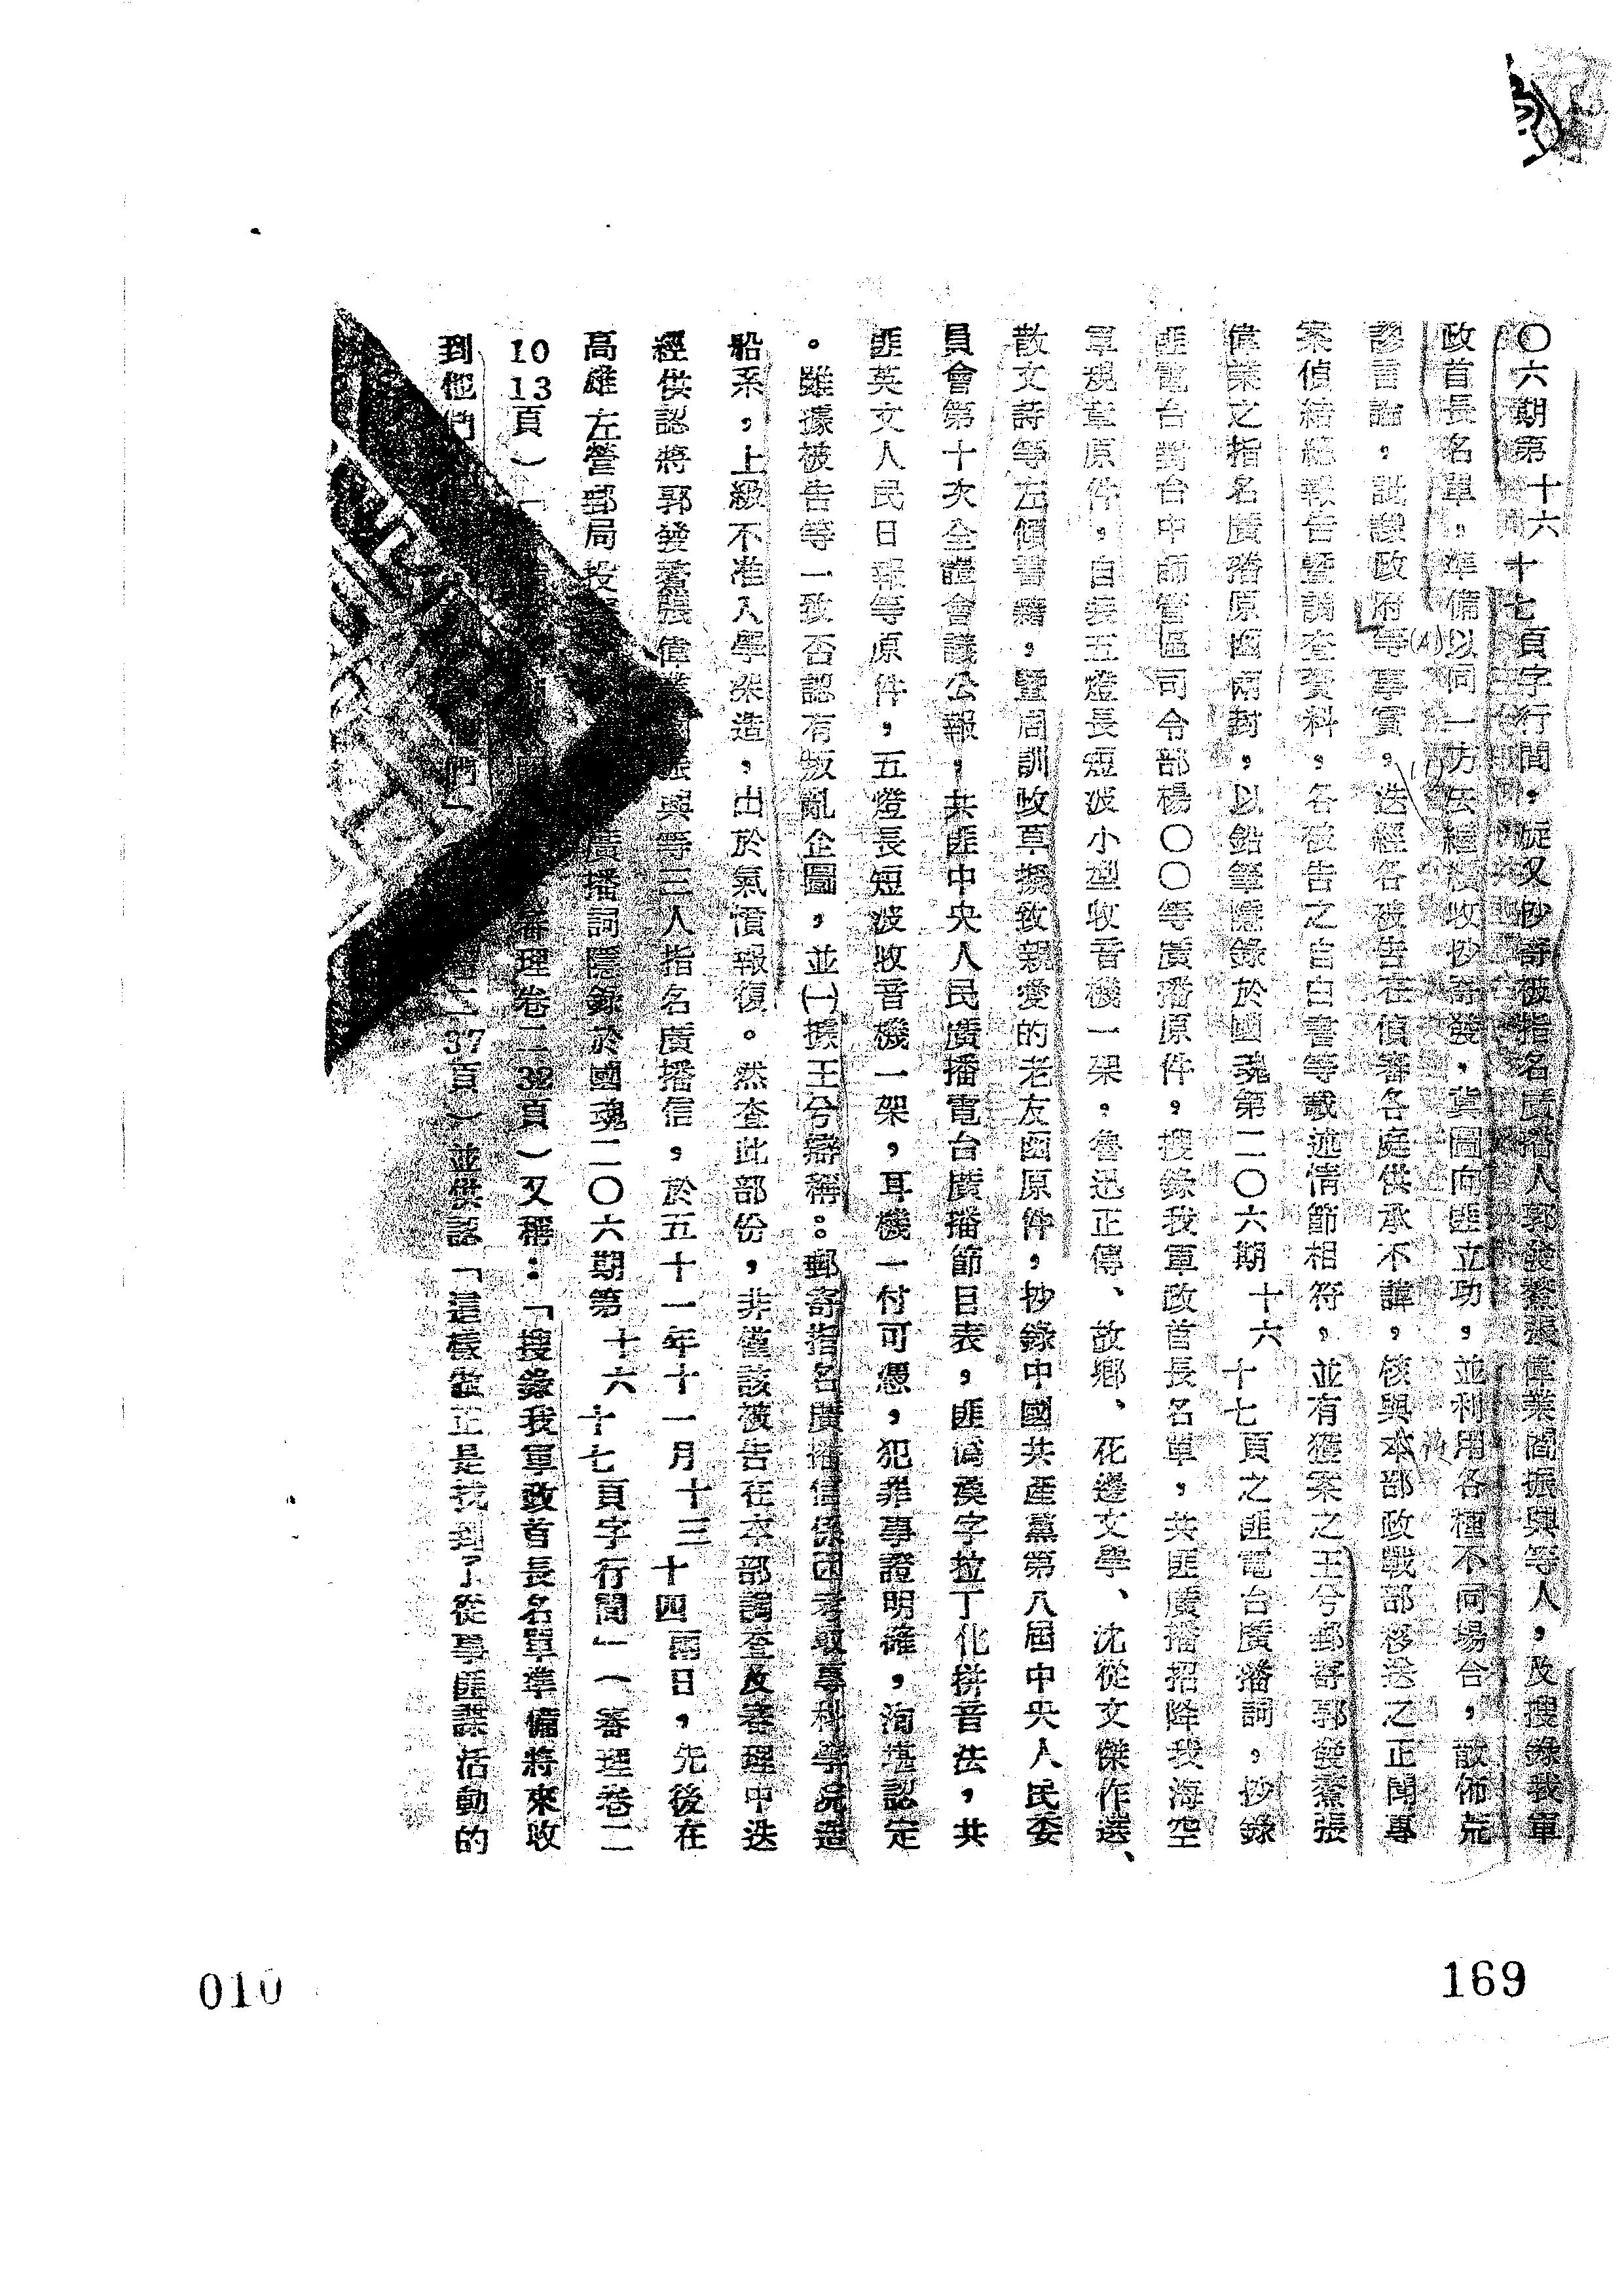 〇六期第十六十七頁字行間，旋又抄寄被指名廣播人郭發鰲張偉業閻振興等人，及搜錄我軍
政首長名單，準備以同一方法繼續收抄寄發，冀圖向匪立功，並利用各種不同場合，散佈荒
謬言論，詆譭政府等事實。迭經各被告在偵審各庭供承不諱，核與本部政戰部移送之正聞專
案偵結總報告暨調查資料，各被告之自白書等載述情節相符，並有獲案之王兮郵寄郭發鰲張
偉業之指名廣播原函兩封，以鉛筆隱錄於國魂第二〇六期十六十七頁之匪電台廣播詞，抄錄
匪電台對台中師管區司令部楊〇〇等廣播原件，搜錄我軍政首長名單，共匪廣播招降我海空
軍魂草原件，自裝五燈長短波小型收音機一架，魯迅正傳、故鄉、花邊文學、沈從文傑作選、
散文詩等左傾書籍，暨周訓收草擬致親愛的老友函原件，抄錄中國共產黨第八屆中央人民委
員會第十次全體會議公報，共匪中央人民廣播電台廣播節目表，匪偽漢字拉丁化拼音法，共
匪英文人民日報等原件，五燈長短波收音機一架，耳機一付可憑，犯罪事證明確，洵堪認定
。雖據被告等一致否認有叛亂企圖，並㈠據王兮辯稱：郵寄指名廣播信係因考取專科學院造
船系，上級不准入學深造，出於氣憤報復。然查此部份，非僅該被告在本部調查及審理中迭
經供認將郭發鰲張偉業 與等三人指名廣播信，於五十一年十一月十三十四兩日，先後在
高雄左營郵局投 廣播詞隱錄於國魂二〇六期第十六十七頁字行間」（審理卷二
10 13頁） 審理卷二32頁）又稱：「搜錄我軍政首長名單準備將來收
到他們 們」 二37頁）並供認「這樣做正是找到了從事匪諜活動的
010
169